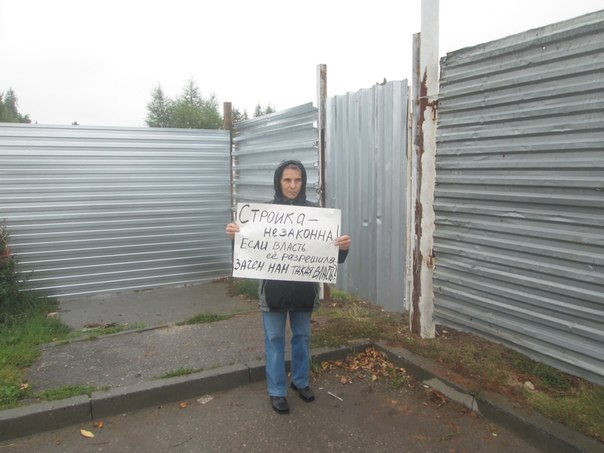 Стройка –
незаконна!
Если власть
её разрешила
зачем нам такая власть?